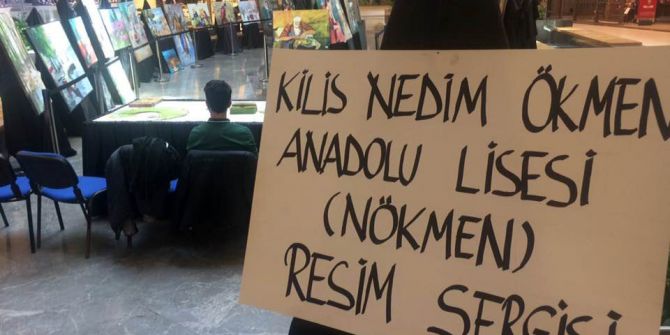 KİLİS NEDİM ÖKMEN
ANADOLU LİSESİ
(NÖKMEN)
RESİM SERGİSİ